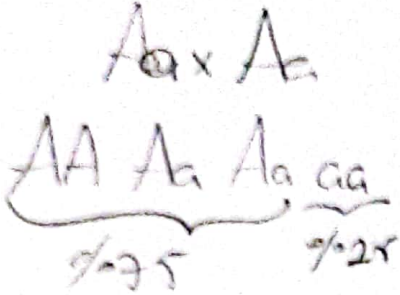 Aa x Aa
AA Aa Aa aa
%75 %25